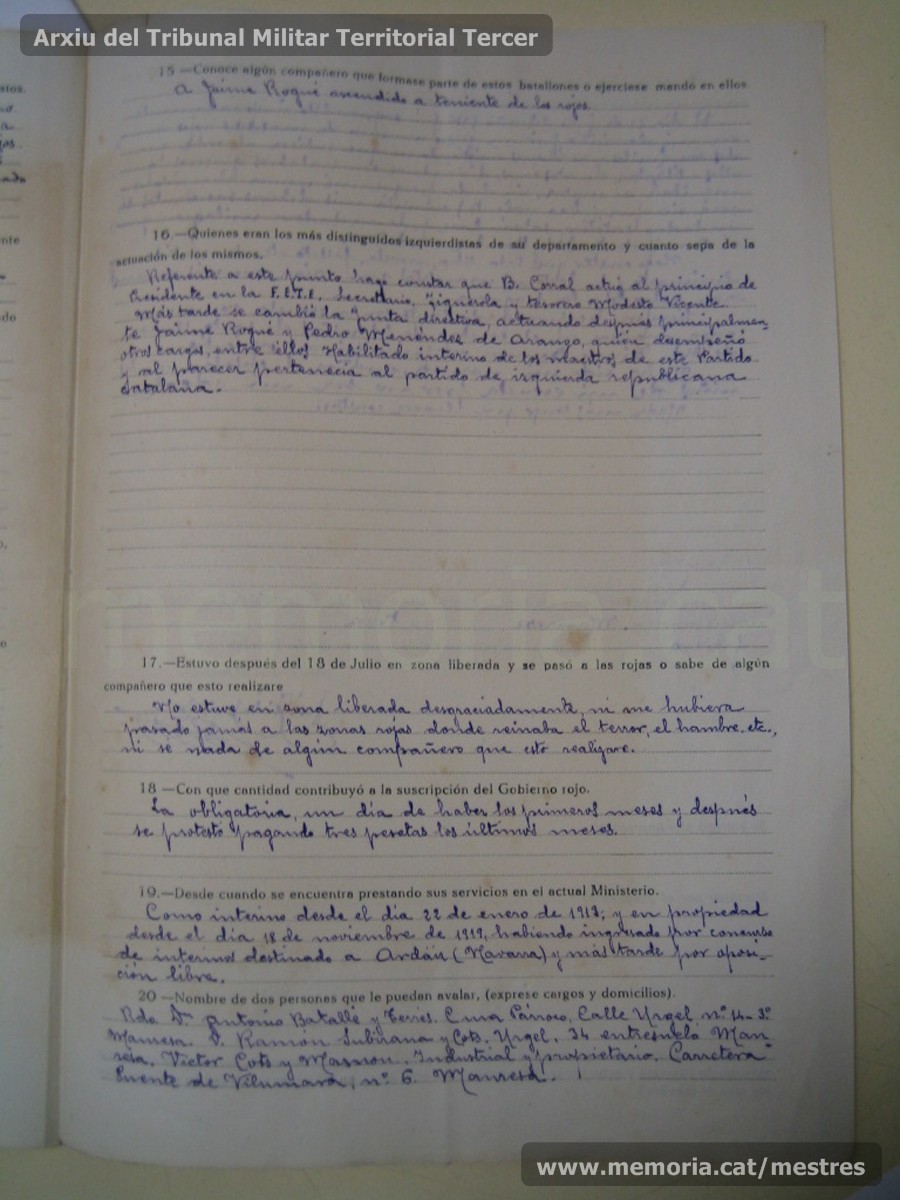 Arxiu del Tribunal Militar Territorial Tercer
15.—Conoce algún compañero que formase parte de estos batallones o ejerciese mando en ellos
A Jaime Roqué ascendido a teniente de los rojos.
16.—Quienes eran los más distinguidos izquierdistas de su departamento y cuanto sepa de la
actuación de los mismos.
Referente a este punto hago constar que B. Corral actuó al principio de
Presidente en la F.E.T.E. Secretario, Figuerola y tesorero Modesto Vicente.
Más tarde se cambió la Junta directiva, actuando después principalmen-
te Jaime Roqué y Pedro Menéndez de Arango, quien desempeñó
otros cargos, entre ellos Habilitado interino de los maestros de este Partido
y al parecer pertenecía al partido de izquierda republicana
Catalana.
17.—Estuvo después del 18 de Julio en zona liberada y se pasó a las rojas o sabe de algún
compañero que esto realizare
No estuve en zona liberada desgraciadamente, ni me hubiera
pasado jamás a las zonas rojas donde reinaba el terror, el hambre, etc.,
ni sé nada de algún compañero que esto realizare.
18 —Con que cantidad contribuyó a la suscripción del Gobierno rojo.
La obligatoria, un día de haber los primeros meses y después
se protestó pagando tres pesetas los últimos meses.
19.—Desde cuando se encuentra prestando sus servicios en el actual Ministerio.
Como interino desde el día 22 de enero de 1913; y en propiedad
desde el día 18 de noviembre de 1919, habiendo ingresado por concurso
de interinos destinado a Ardáiz (Navarra) y más tarde por oposi-
ción libre.
20 —Nombre de dos personas que le puedan avalar, (exprese cargos y domicilios).
Rdo. Dn. Antonio Batallé y Terrés. Cura Párroco, Calle Urgel nº 14-3º
Manresa. D. Ramón Subirana y Cots. Urgel, 34 entresuelo Man-
resa. Victor Cots y Masmon. Industrial y propietario. Carretera
Puente de Vilumara, nº 6. Manresa.
www.memoria.cat/mestres